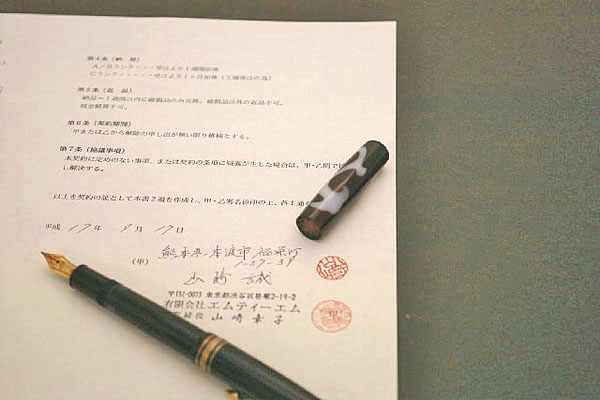 第4条（納　期）
A／Bランク・・・受注より1週間前後
Cランク・・・・受注より1ヶ月前後（工場発注の為）
第5条（返　品）
納品～1週間以内に破損品のみ交換。破損品以外の返品不可。
現金精算不可。
第6条（契約期間）
甲または乙から解除の申し出が無い限り継続とする。
第7条（協議事項）
本契約に定めのない事項、または契約の条項に疑義が生じた場合は、甲・乙間で
し解決する。
以上を契約の証として本書2通を作成し、甲・乙署名捺印の上、各1通
平成 17年 9月 17日
（甲） 熊本県本渡市
山崎
〒151-0073 東京都渋谷区笹塚2-19-2
有限会社エムティーエム
締役 山崎幸子